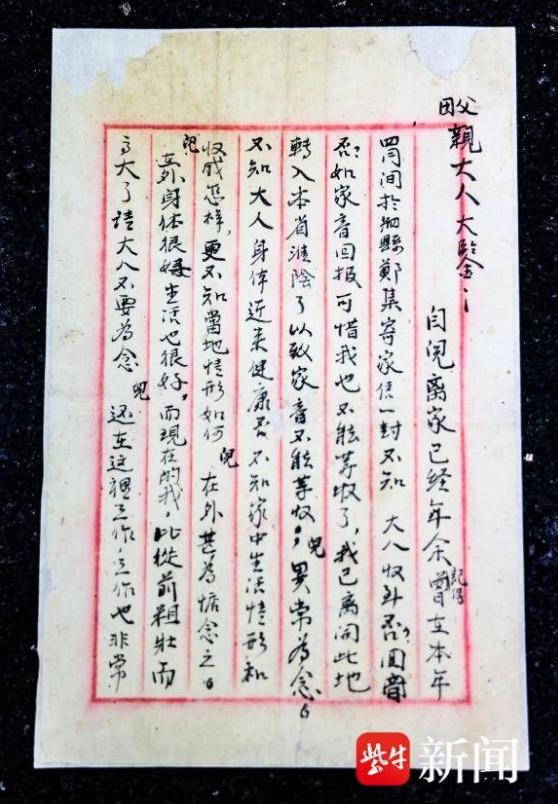 父親大人大鑒：
自兒离家已經年余記得曾在本年
四月间於泗縣鄭集寄家信一封不知 大人收到否？回音
否？如家音回报可惜我也不能等收了，我已离開此地
轉入本省淮陰了以致家音不能等收，兒異常為念。
不知大人身体近来健康否，不知家中生活情形和
收成怎樣，更不知當地情形如何 兒在外甚為惦念之。
兒在外身体很好生活也很好，而現在的我，比從前粗壮而
高大了請大人不要為念 兒还在这裡工作，工作也非常
紫牛新闻